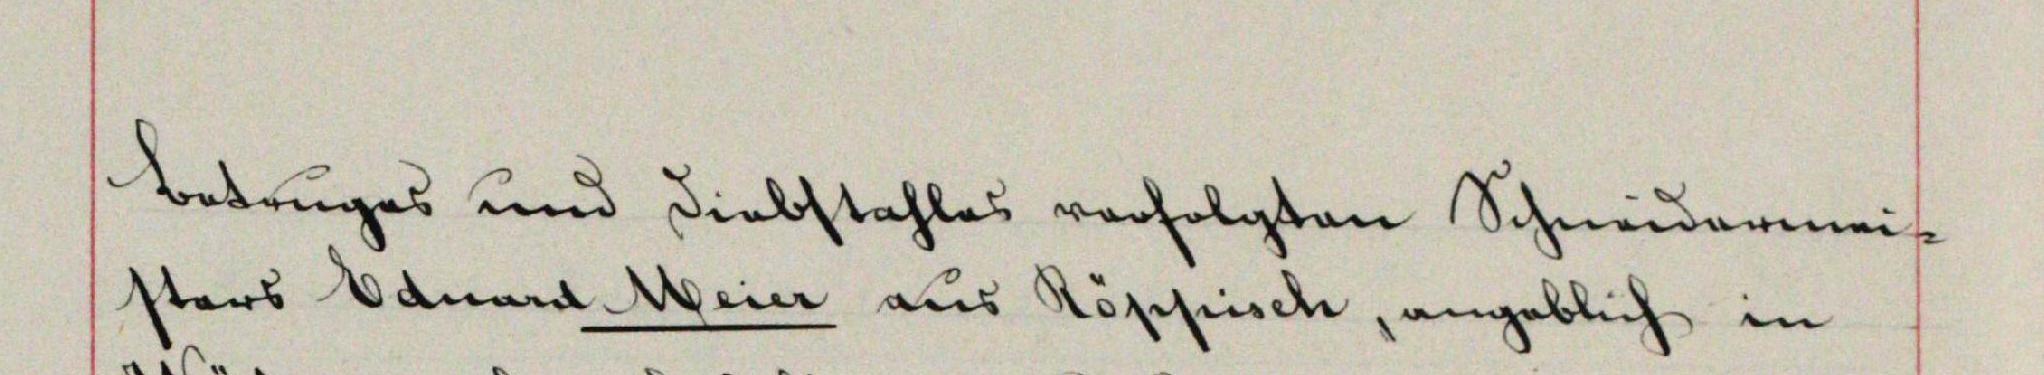 Betruges und Diebstahles verfolgten Schneidermei-
sters Eduard Meier aus Röppisch, angeblich in